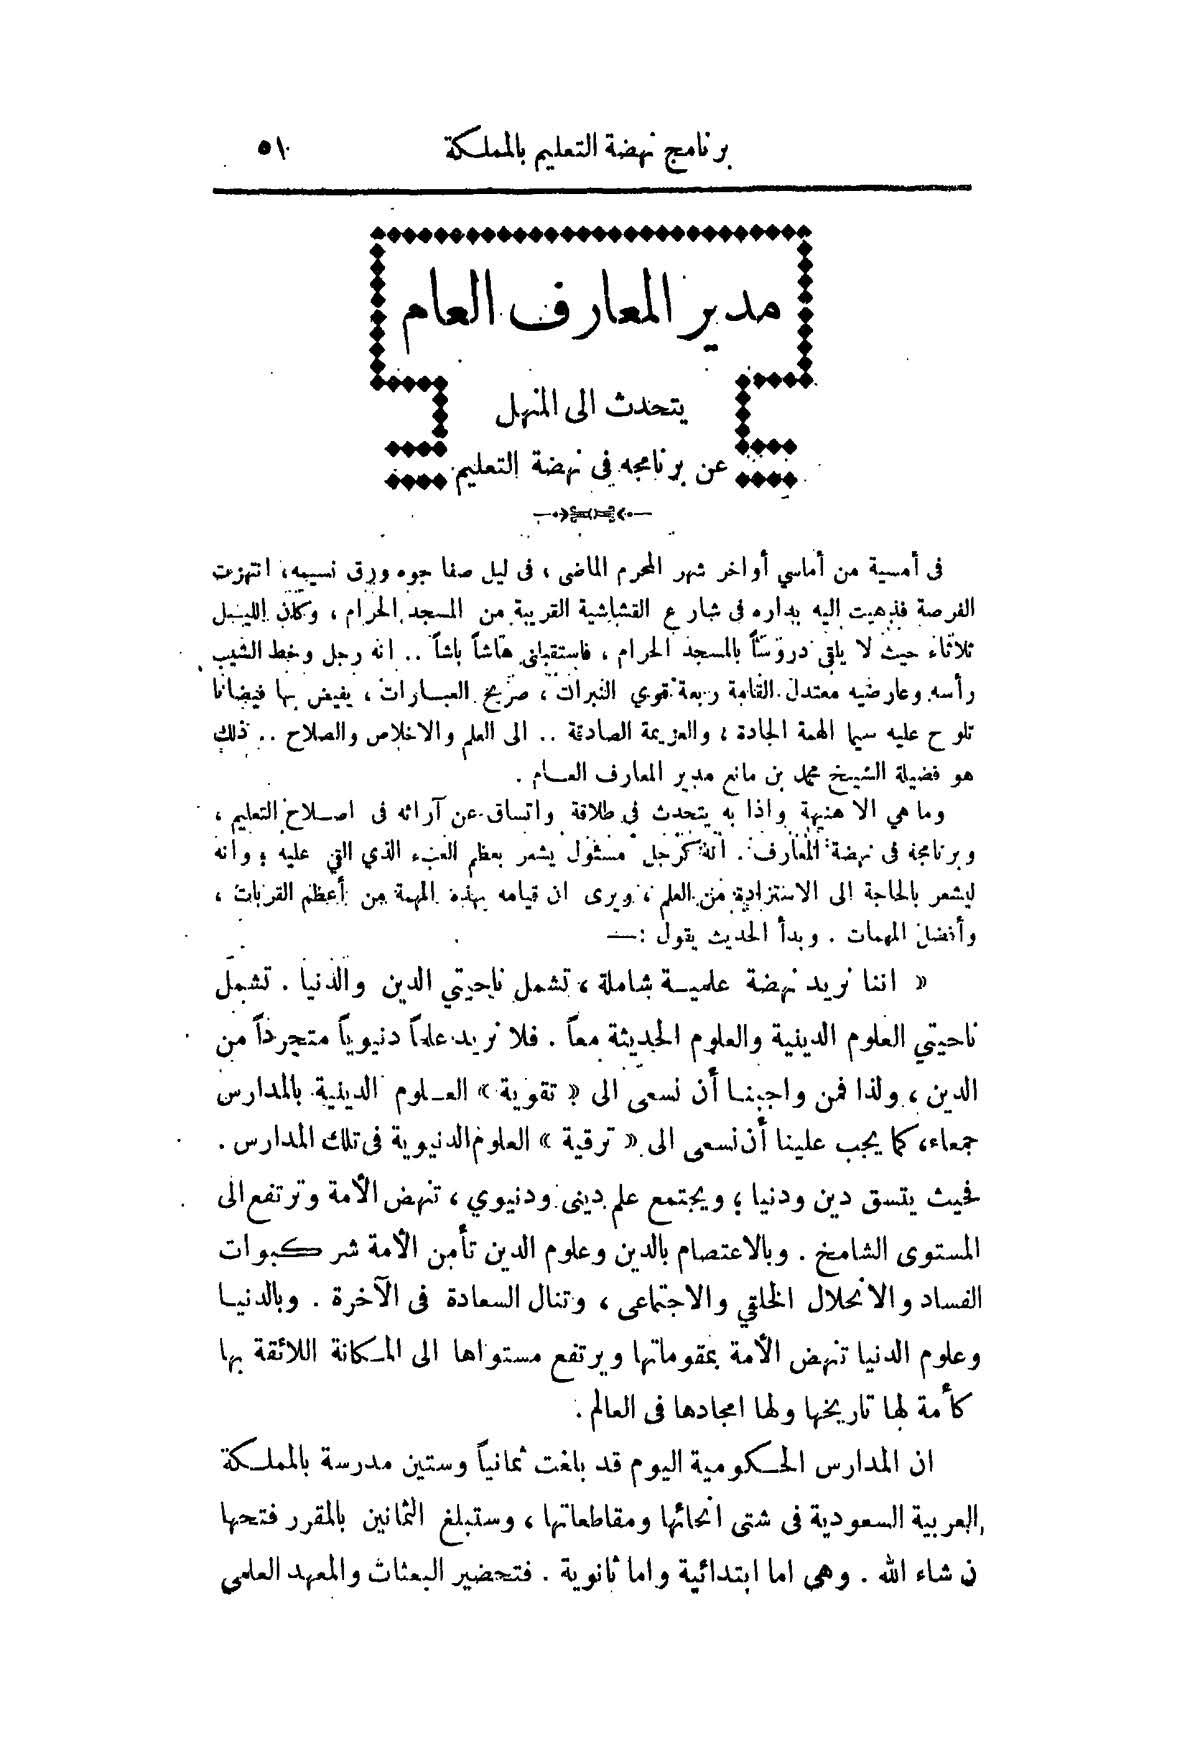 برنامج نهضة التعليم بالمملكة ٥١
مدير المعارف العام
يتحدث الى المنهل
عن برنامجه فى نهضة التعليم
فى أمسية من أماسي أواخر شهر المحرم الماضى ، فى ليل صفا جوه ورق نسيمه، انتهزت
الفرصة فذهبت اليه بداره فى شارع القشاشية القريبة من المسجد الحرام ، وكان الليل
ثلاثاء حيث لا يلقى دروساً بالمسجد الحرام ، فاستقبلنى هاشاً باشاً .. انه رجل وخط الشيب
رأسه وعارضيه معتدل القامة ربعة قوي النبرات ، صريح العبارات ، يفيض بها فيضانا
تلوح عليه سيما الهمة الجادة ، والعزيمة الصادقة .. الى العلم والاخلاص والصلاح .. ذلك
هو فضيلة الشيخ محمد بن مانع مدير المعارف العام .
وما هي الا هنيهة واذا به يتحدث فى طلاقة واتساق عن آرائه فى اصلاح التعليم ،
وبرنامجه فى نهضة المعارف . انه كرجل مسئول يشعر بعظم العبء الذي القي عليه ؛ وانه
ليشعر بالحاجة الى الاستزادة من العلم ، ويرى ان قيامه بهذه المهمة من أعظم القربات ،
وأفضل المهمات . وبدأ الحديث يقول :—
« اننا نريد نهضة علمية شاملة ، تشمل ناحيتي الدين والدنيا . تشمل
ناحيتي العلوم الدينية والعلوم الحديثة معاً . فلا نريد علماً دنيوياً متجرداً من
الدين ، ولذا فمن واجبنا أن نسعى الى « تقوية » العلوم الدينية بالمدارس
جمعاء، كما يجب علينا أن نسعى الى « ترقية » العلوم الدنيوية فى تلك المدارس .
فحيث يتسق دين ودنيا ؛ ويجتمع علم دينى ودنيوي ، تنهض الأمة وترتفع الى
المستوى الشامخ . وبالاعتصام بالدين وعلوم الدين تأمن الأمة شر كبوات
الفساد والانحلال الخلقي والاجتماعى ، وتنال السعادة فى الآخرة . وبالدنيا
وعلوم الدنيا تنهض الأمة بمقوماتها ويرتفع مستواها الى المكانة اللائقة بها
كأمة لها تاريخها ولها امجادها فى العالم .
ان المدارس الحكومية اليوم قد بلغت ثمانياً وستين مدرسة بالمملكة
العربية السعودية فى شتى انحائها ومقاطعاتها ، وستبلغ الثمانين بالمقرر فتحها
ن شاء الله . وهي اما ابتدائية واما ثانوية . فتحضير البعثات والمعهد العلمي